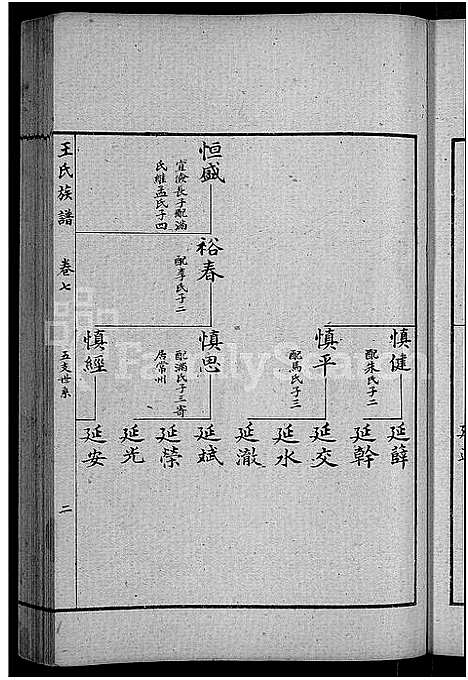 恒盛
宣儉長子配滿
氏繼孟氏子四
裕春
配李氏子二
慎健
配朱氏子二
慎平
配馬氏子三
慎思
配滿氏子三寄
居常州
慎經
延薛
延幹
延交
延水
延澈
延斌
延榮
延光
延安
王氏族譜
卷七
五支世系
二
FamilySearch